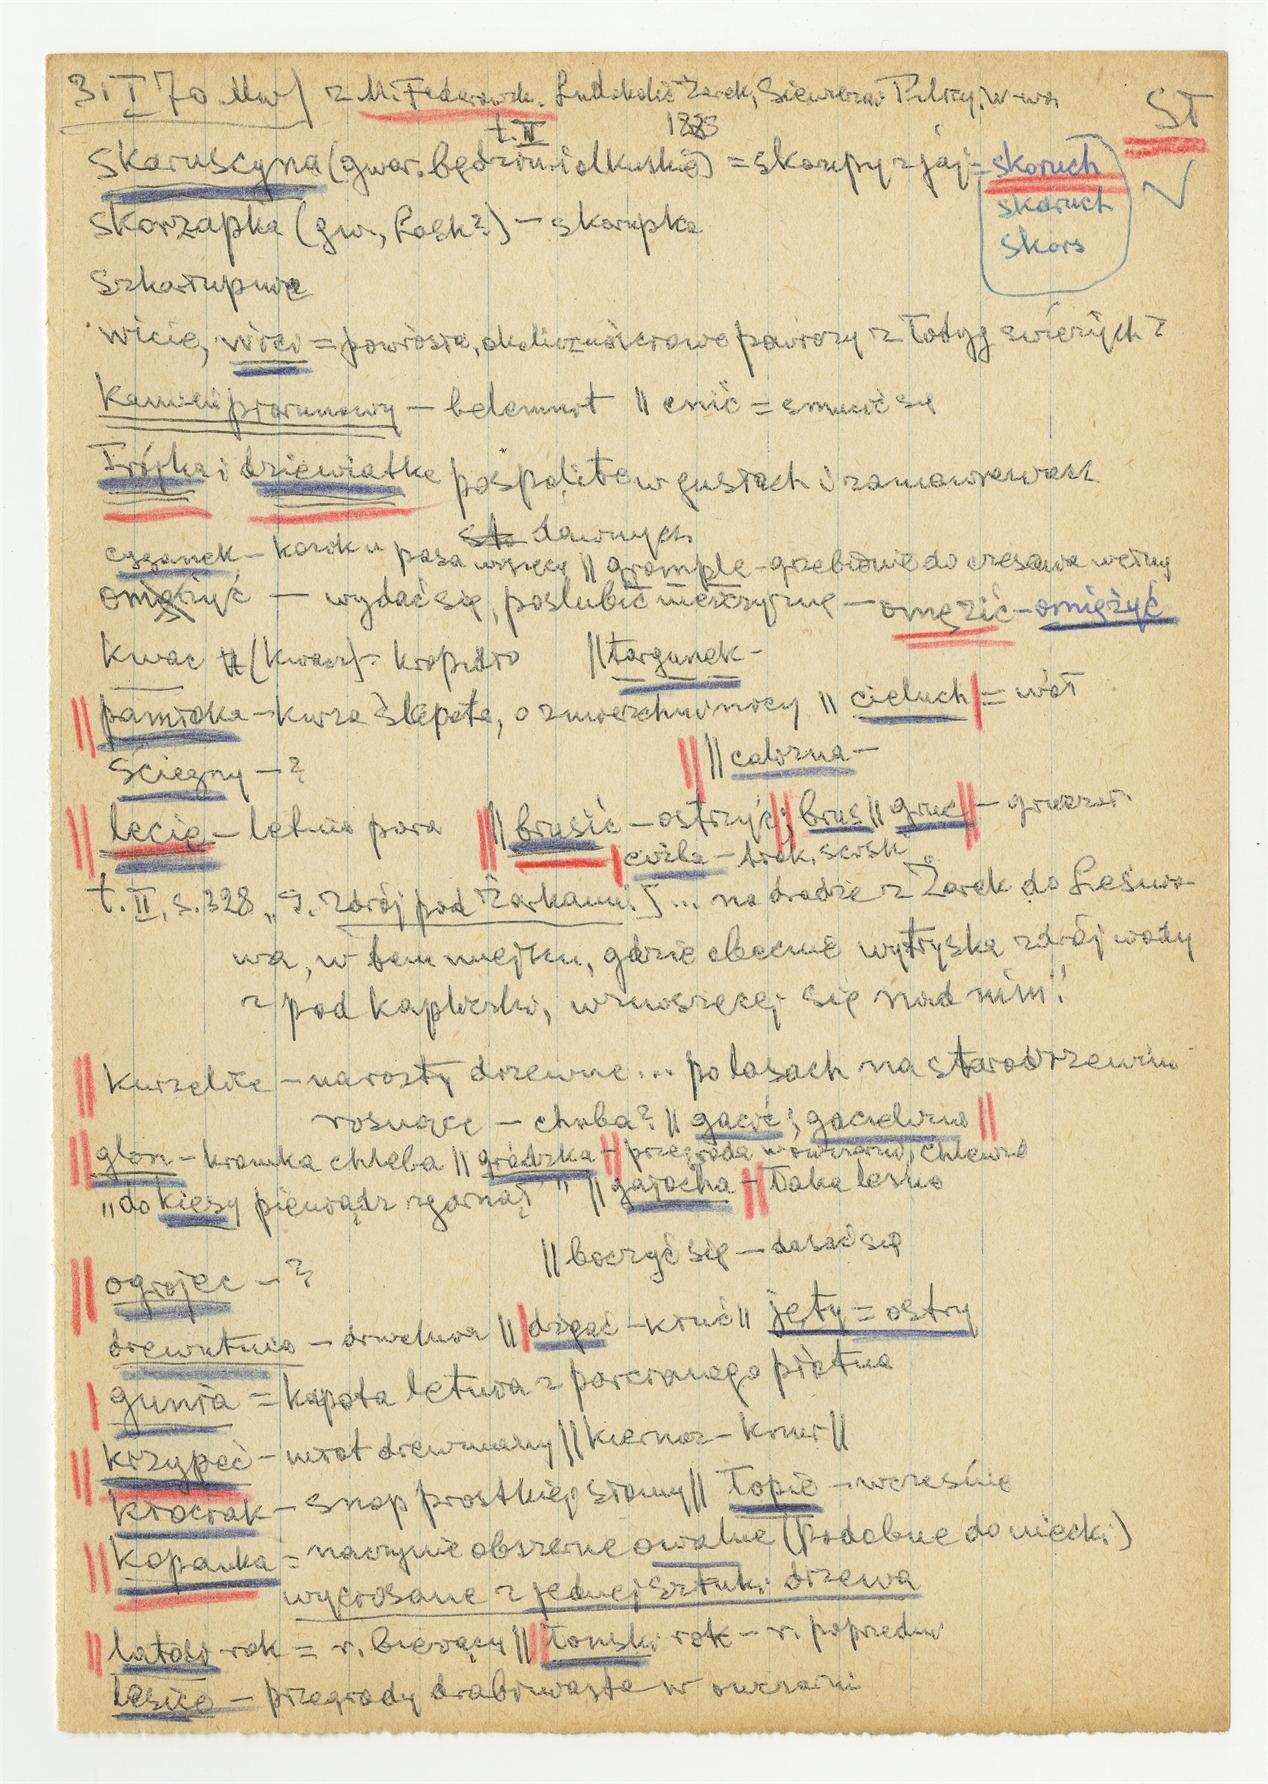 3 I 70 z M. Federowsk. Lud okolic Żarek, Siewierza i Pilicy, W-wa
t. II 1889 ST
Skaruscyna (gwar. będzińs. i olkuskie) = skorupy z jaj = skoruch
skaruch
skors
skorzapka (gw. ) – skorupka
szkarłupnie
wicie, wici = powrósła, powrozy z łodyg świeżych ?
Kamień piorunowy – belemnit || cnić = smucić się
Trójka i dziewiątka pospolite w gusłach i zamawianiach
cyganek – kozik u pasa wiszący dawnych || gremple – grzebienie do czesania wełny
– wydać się, poślubić mężczyznę – omężić – omężyć
kwac (kwacz) – kropidło || targanek –
|| pamroka – kurza ślepota, o zmierzchu i nocy || cieluch | = wół
ściegny – ? || || calizna –
|| lecie – letnia pora || || brusić – ostrzyć || ; brus || gruc || – gruczoł
| ciżba –
t. II, s. 328 „9. Zdrój pod Żarkami [... na drodze z Żarek do Leśnio-
wa, w tem miejscu, gdzie obecnie wytryska zdrój wody
z pod kapliczki, wznoszącej się nad nim"
|| kurzelice – narosty drzewne ... po lasach na starodrzewiu
rosnące – chuba? || gacić ; gacielizna ||
|| glon – kromka chleba || gródzka – || przegroda w owczarni, chlewie
„do kiesy pieniądz zgarnąć" || gajocha – || laka leśna
|| boczyć się – dąsać się
|| ogrojec – ?
drewutnia – drwalnia || | dzigać – kłuć || jęty = ostry
| gunia = kapota letnia z parcianego płótna
|| krzypeć – młot drewniany || kiernoz – knur ||
kłociak – snop prostkiej słomy || łopie – wcześnie
|| Kopanka = naczynie obszerne owalne (podobne do niecki)
wyciosane z jednej sztuki drzewa
|| latosi rok = r. bieżący || łoński rok – r. poprzedni
lasice – przegrody drabiniaste w owczarni